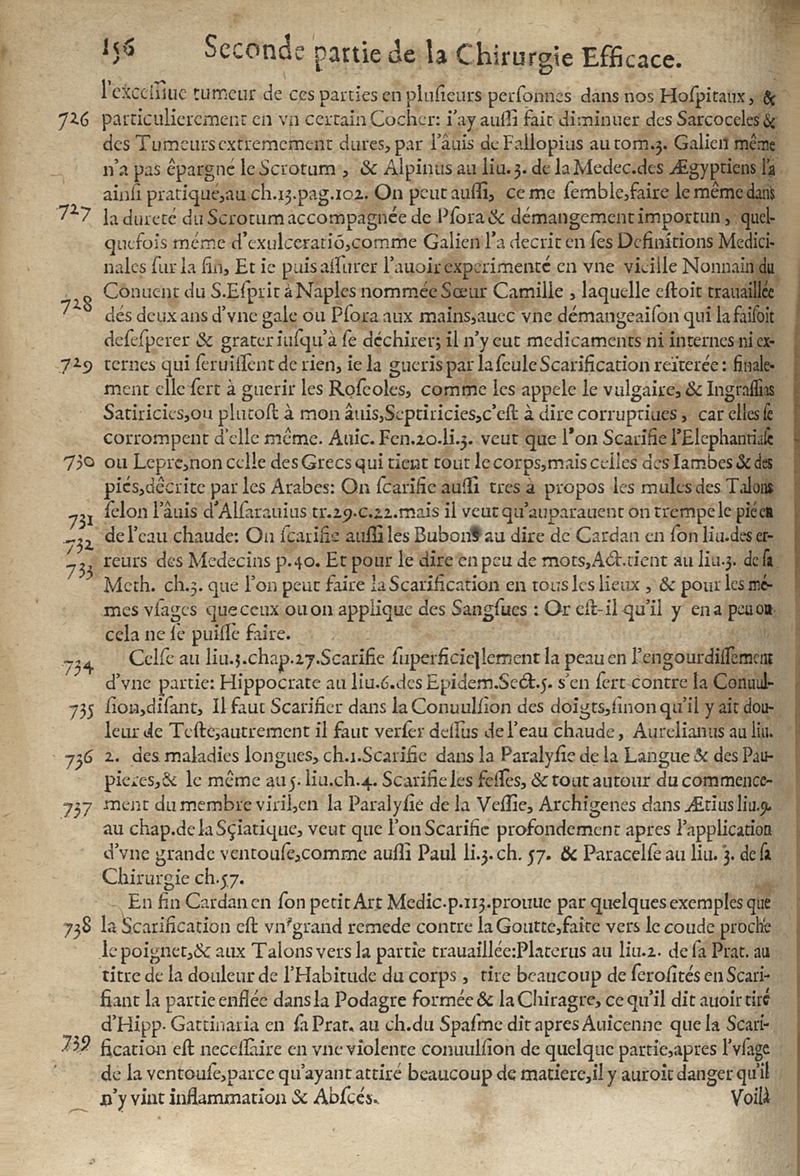 156 Seconde partie de la Chirurgie Efficace.
l'excessiue tumeur de ces parties en plusieurs personnes dans nos Hospitaux, &
726 particulierement en vn certain Cocher: i'ay aussi fait diminuer des Sarcoceles &
des Tumeurs extremement dures, par l'âuis de Fallopius au tom.3. Galien même
n'a pas êpargné le Scrotum, & Alpinus au liu.3. de la Medec.des Ægyptiens l'a
ainsi pratiqué,au ch.13.pag.102. On peut aussi, ce me semble,faire le même dans
727 la dureté du Scrotum accompagnée de Psora & démangement importun, quel-
quefois méme d'exulceratiõ,comme Galien l'a decrit en ses Definitions Medici-
nales sur la fin, Et ie puis assurer l'auoir experimenté en vne vieille Nonnain du
728 Conuent du S.Esprit à Naples nommée Sœur Camille, laquelle estoit trauaillée
dés deux ans d'vne gale ou Psora aux mains,auec vne démangeaison qui la faisoit
desesperer & grater iusqu'à se déchirer; il n'y eut medicaments ni internes ni ex-
729 ternes qui seruissent de rien, ie la gueris par la seule Scarification reïterée: finale-
ment elle sert à guerir les Roseoles, comme les appele le vulgaire, & Ingrassias
Satiricies,ou plutost à mon âuis,Septiricies,c'est à dire corruptiues, car elles se
corrompent d'elle même. Auic. Fen.20.li.3. veut que l'on Scarifie l'Elephantiase
730 ou Lepre,non celle des Grecs qui tient tout le corps,mais celles des Iambes & des
piés,décrite par les Arabes: On scarifie aussi tres à propos les mules des Talons
731 selon l'âuis d'Alsarauius tr.29.c.22.mais il veut qu'auparauent on trempe le pié en
732 de l'eau chaude: On scarifie aussi les Bubons au dire de Cardan en son liu.des er-
733 reurs des Medecins p.40. Et pour le dire en peu de mots,Act.tient au liu.3. de sa
Meth. ch.3. que l'on peut faire la Scarification en tous les lieux, & pour les mé-
mes vsages que ceux ou on applique des Sangsues: Or est-il qu'il y en a peu ou
cela ne se puisse faire.
734 Celse au liu.3.chap.27.Scarifie superficiellement la peau en l'engourdissement
d'vne partie: Hippocrate au liu.6.des Epidem.Sect.5. s'en sert contre la Conuul-
735 sion,disant, Il faut Scarifier dans la Conuulsion des doigts,sinon qu'il y ait dou-
leur de Teste;autrement il faut verser dessus de l'eau chaude, Aurelianus au liu.
736 2. des maladies longues, ch.1.Scarifie dans la Paralysie de la Langue & des Pau-
pieres,& le même au 5. liu.ch.4. Scarifie les fesses, & tout autour du commence-
737 ment du membre viril,en la Paralysie de la Vessie, Archigenes dans Ætius liu.9.
au chap.de la Sçiatique, veut que l'on Scarifie profondement apres l'application
d'vne grande ventouse,comme aussi Paul li.3.ch. 57. & Paracelse au liu. 3. de sa
Chirurgie ch.57.
En fin Cardan en son petit Art Medic.p.113.prouue par quelques exemples que
738 la Scarification est vn grand remede contre la Goutte,faite vers le coude proche
le poignet,& aux Talons vers la partie trauaillée:Platerus au liu.2. de sa Prat. au
titre de la douleur de l'Habitude du corps, tire beaucoup de serosités en Scari-
fiant la partie enflée dans la Podagre formée & la Chiragre, ce qu'il dit auoir tiré
d'Hipp. Gattinaria en sa Prat. au ch.du Spasme dit apres Auicenne que la Scari-
739 fication est necessaire en vne violente conuulsion de quelque partie,apres l'vsage
de la ventouse,parce qu'ayant attiré beaucoup de matiere,il y auroit danger qu'il
n'y vint inflammation & Abscés. Voilà